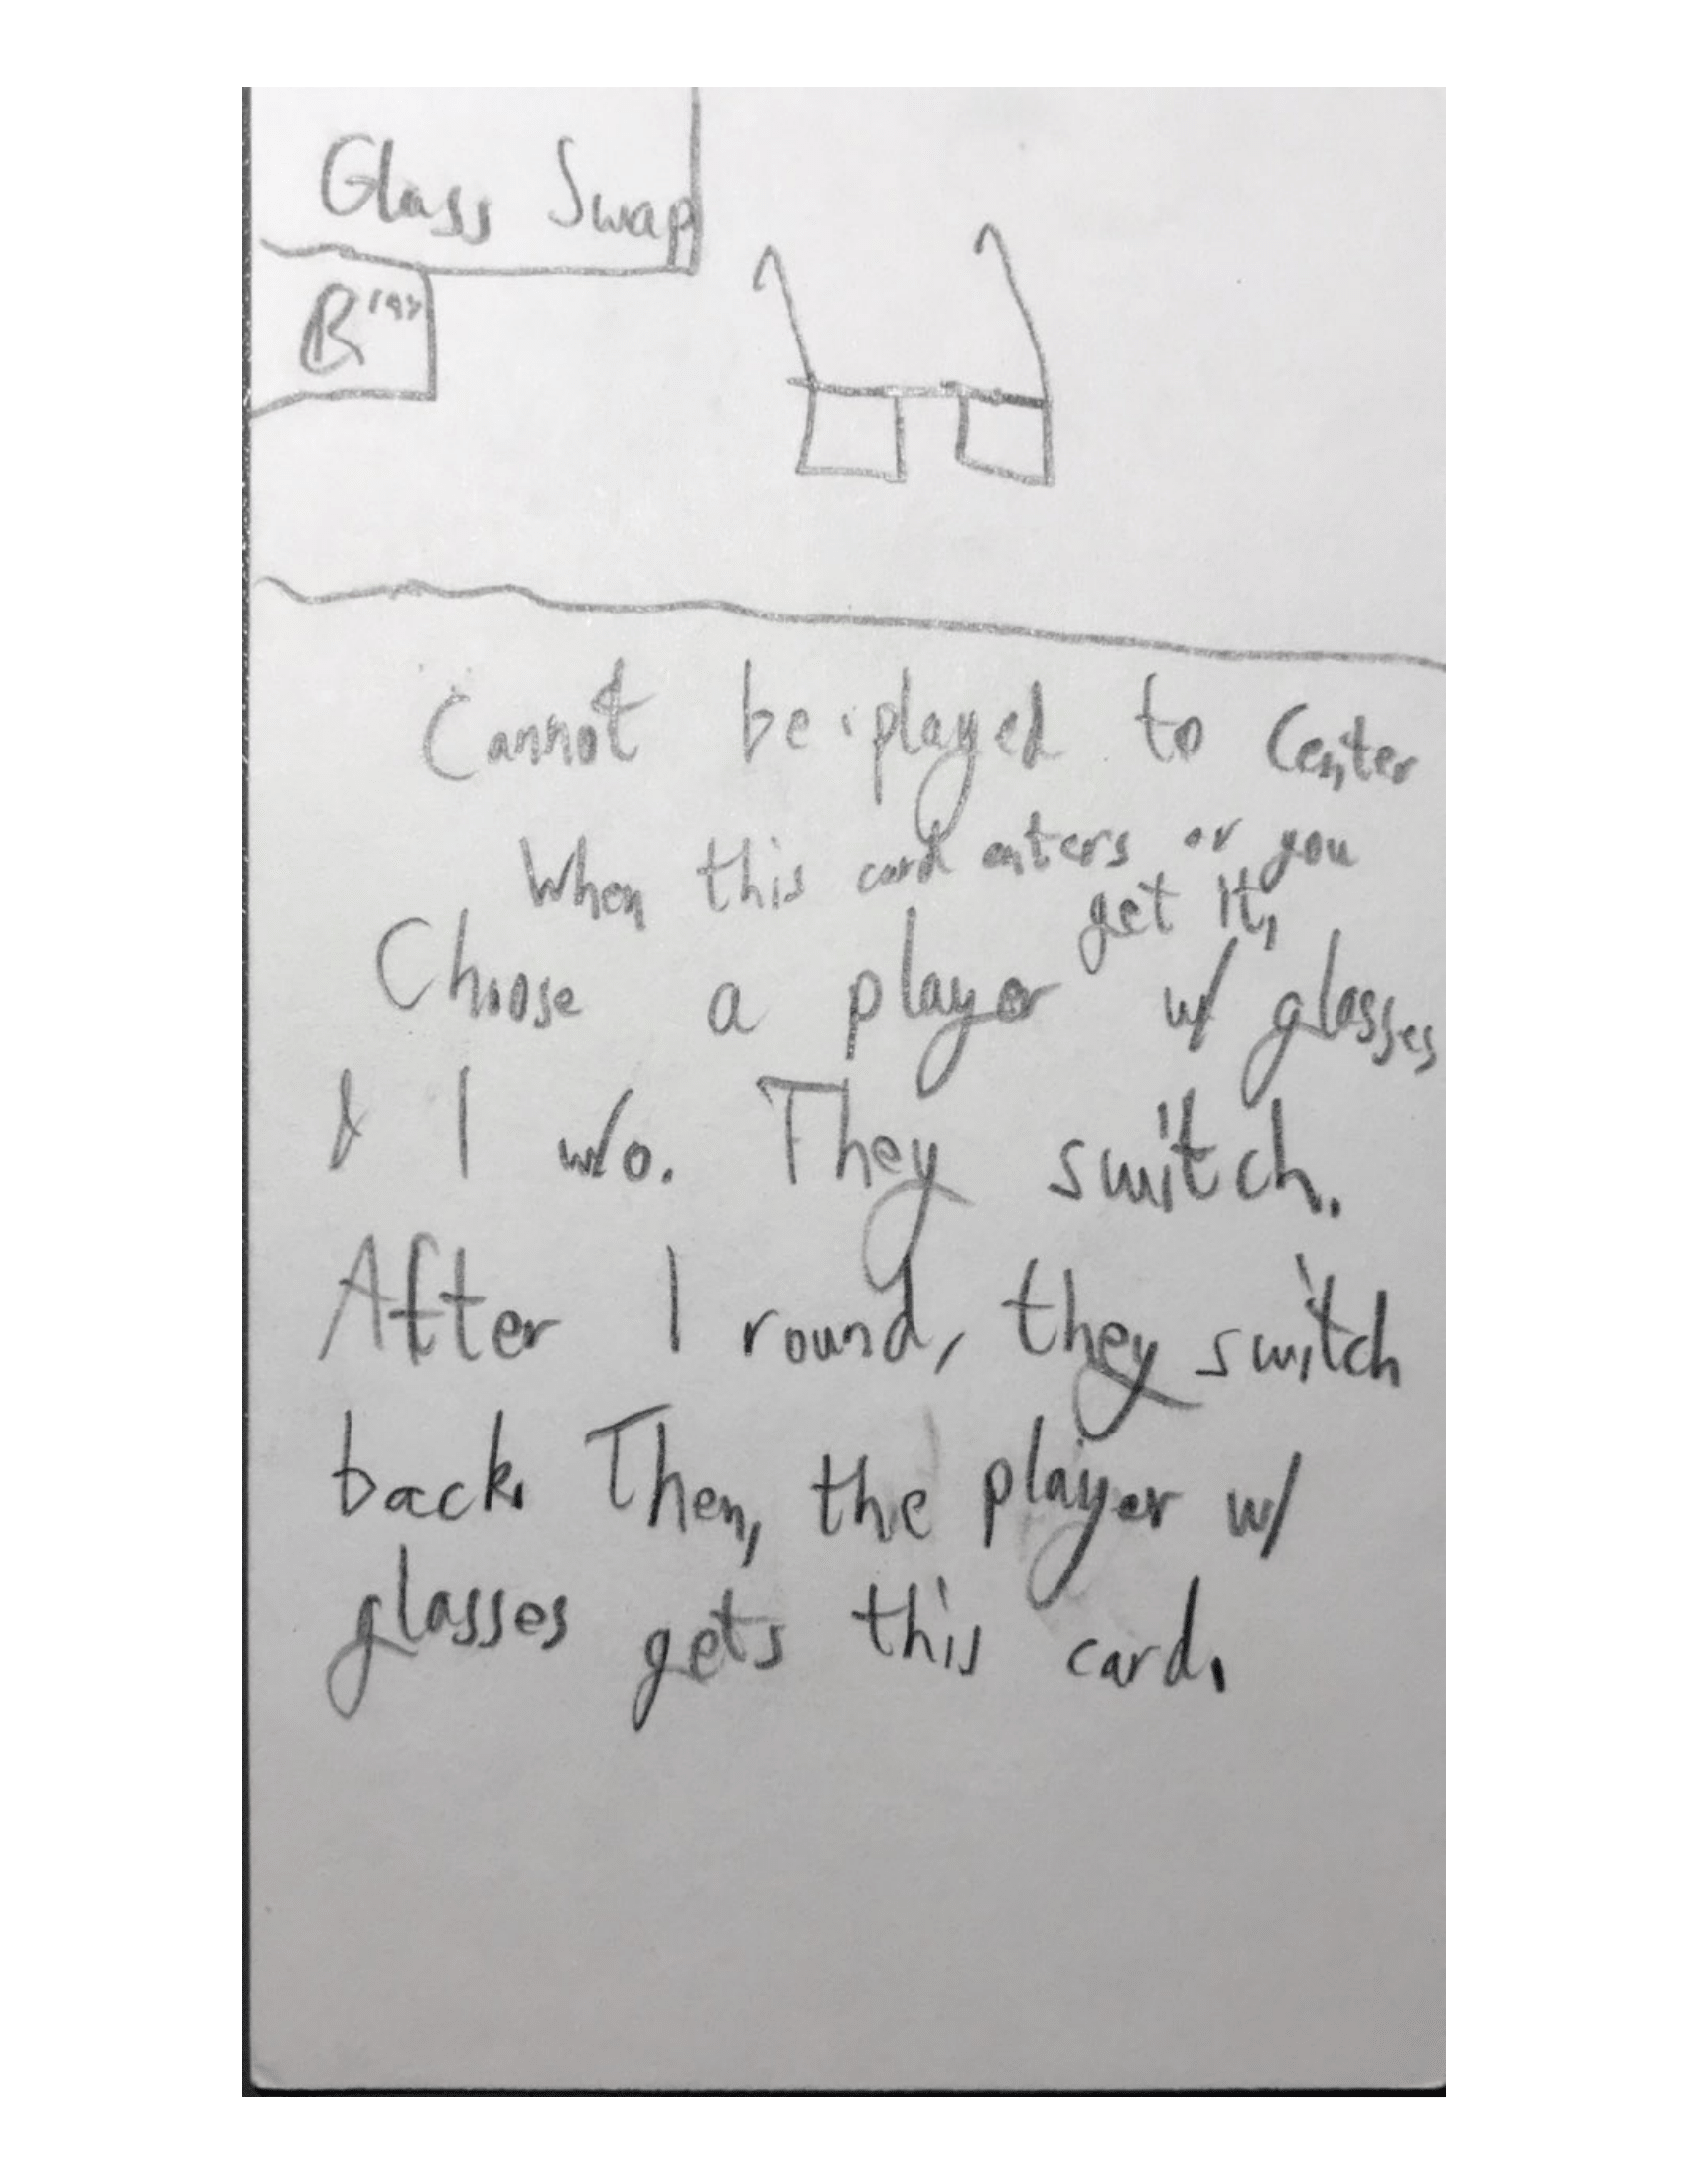 Glass Swap
Cannot be played to Center
When this card enters or you
get it,
Choose a player w/ glasses
& 1 w/o. They switch.
After 1 round, they switch
back. Then, the player w/
glasses gets this card.